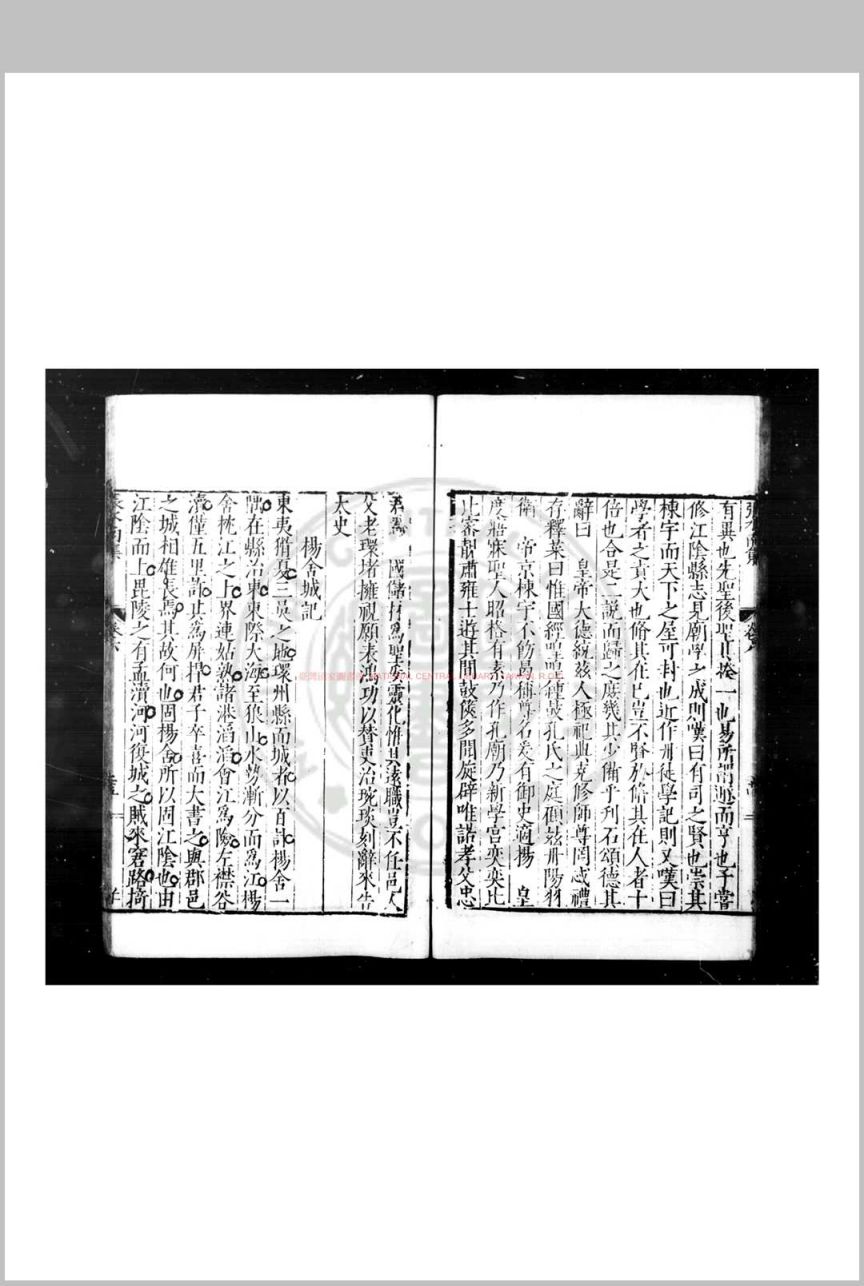 有異也先聖後聖其揆一也易所謂遯而亨也予嘗
修江陰縣志見廟學之成則嘆曰有司之賢也崇其
棟宇而天下之屋可封也近作丹徒學記則又嘆曰
學者之責大也脩其在已豈不賢於脩其在人者十
倍也合是二說而歸之庶幾其少備乎刋石頌德其
辭曰 皇帝大德統玆人極祀典克修師尊罔忒禮
存釋菜曰惟國經 鐘鼓孔氏之庭頋玆丹陽
衛 帝京棟宇不飭曷稱尊名奚有御史適楊 皇
度寤寐聖人昭格有素乃作孔廟乃新學宫奕奕比
止審 肅雍士遊其間鼓篋多聞旋辟唯諾孝父忠
君 國儲材爲聖 靈化惟其遠職豈不任邑人
父老環堵擁視願表鴻功以替吏治琬琰刻辭來告
太史
楊舍城記
東夷猾夏三吳之地環州縣而城者以百計楊舍一
隅在縣治東東際大海至狼山水勢漸分而爲江楊
舍枕江之上界連姑孰諸港滔滔會江爲險左襟谷
瀆僅五里許其爲屏捍君子卒喜而大書之與郡邑
之城相雄長焉其故何也固楊舍所以固江陰也由
江陰而上毘陵之有孟瀆河河復城之賊來寇路掎